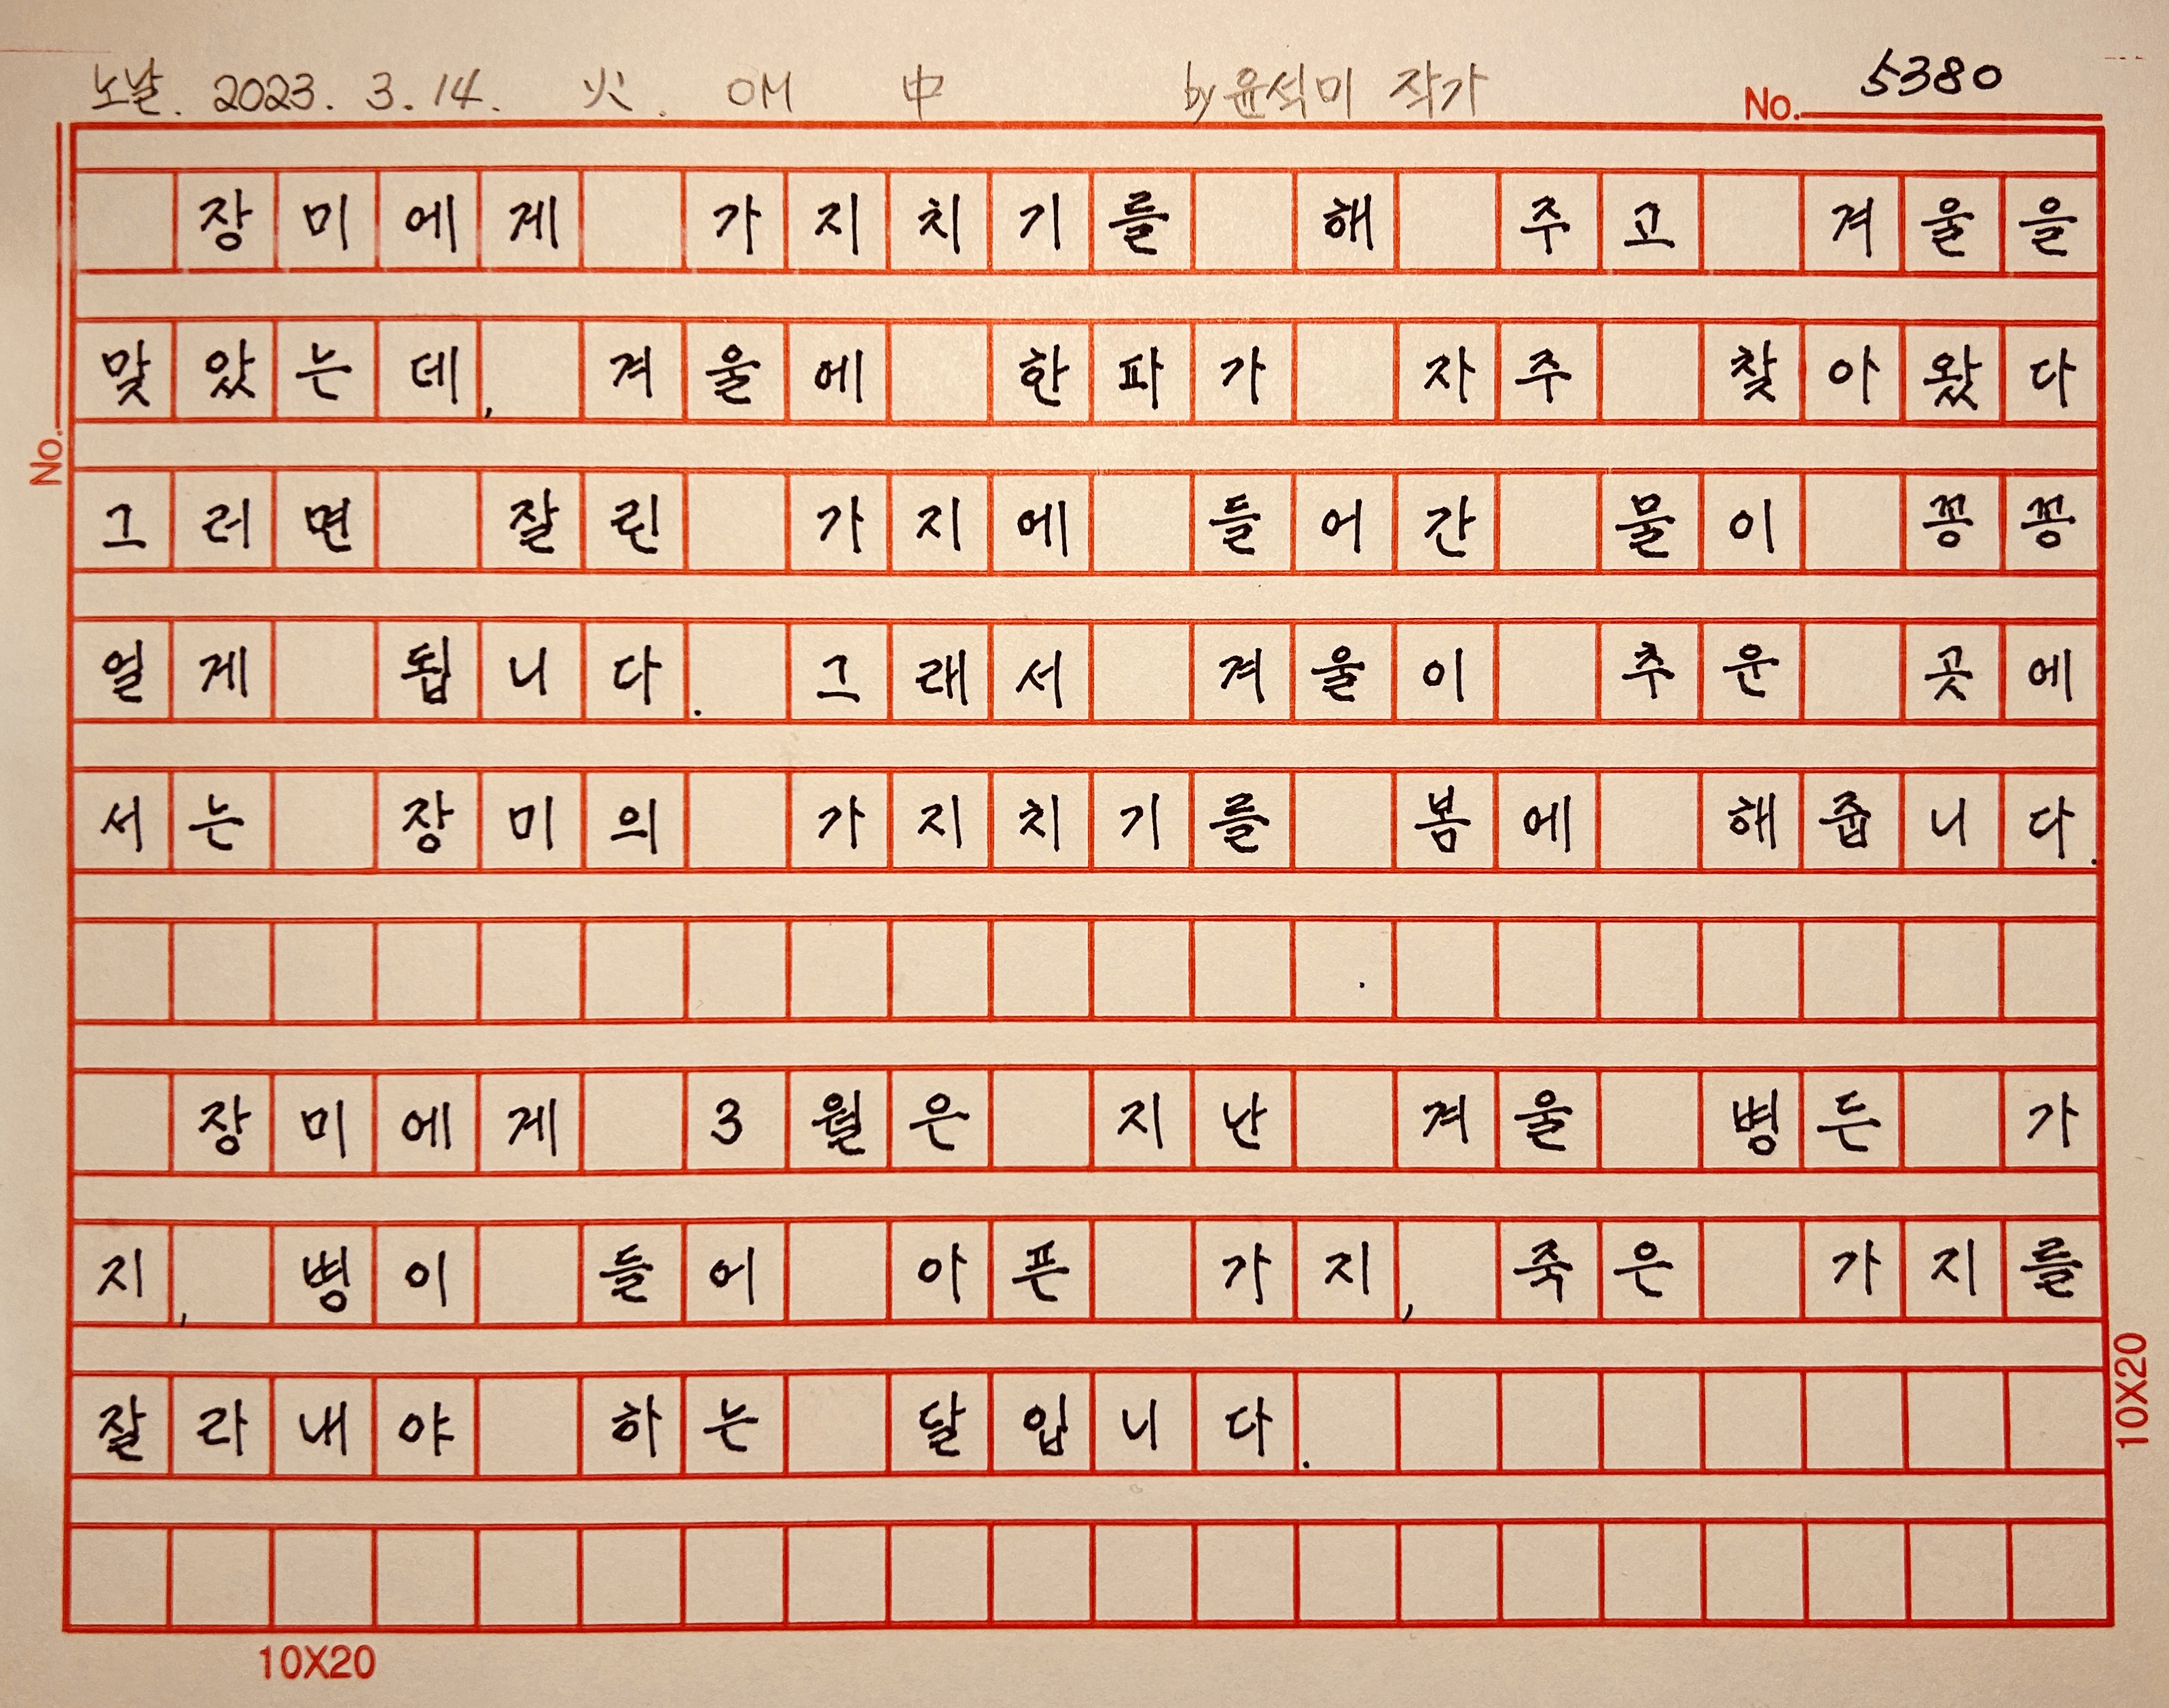 노날. 2023. 3. 14. 火. OM 中 by 윤석미 작가 No. 5380
장미에게 가지치기를 해 주고 겨울을
맞았는데, 겨울에 한파가 자주 찾아왔다
그러면 잘린 가지에 들어간 물이 꽁꽁
얼게 됩니다. 그래서 겨울이 추운 곳에
서는 장미의 가지치기를 봄에 해줍니다.
장미에게 3월은 지난 겨울 병든 가
지, 병이 들어 아픈 가지, 죽은 가지를
잘라내야 하는 달입니다.
No.
10X20
10X20